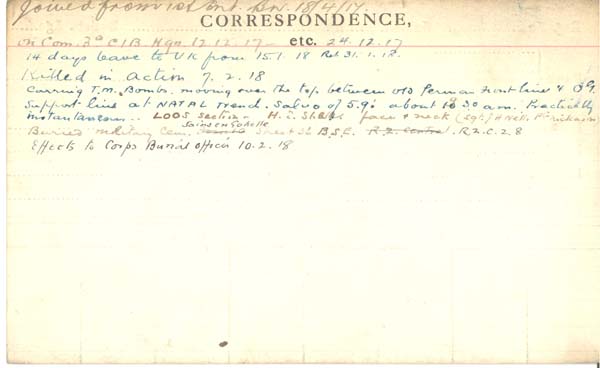 Joined from 1st Ent. Bn. 18/4/17.
CORRESPONDENCE,
on Com. 3a C1B Hqn. 17.12.17 – etc. 24.12.17
14 days leave to UK from 15.1.18 Ret 31.1.18.
Killed in action 7.2.18
Carrying T.M. Bombs. moving over the top between old German Front line & O.G.
Support line at NATAL trench. Salvo of 5.9s about 10.30 am. Practically
instantaneous.. LOOS Section – H.E. Shells face & neck (Sgt.)
Sainsengohelle
Buried Military Cem. B.S.E. R.2. Central. R2.C.2.8
Effects to Corps Burial officer 10.2.18